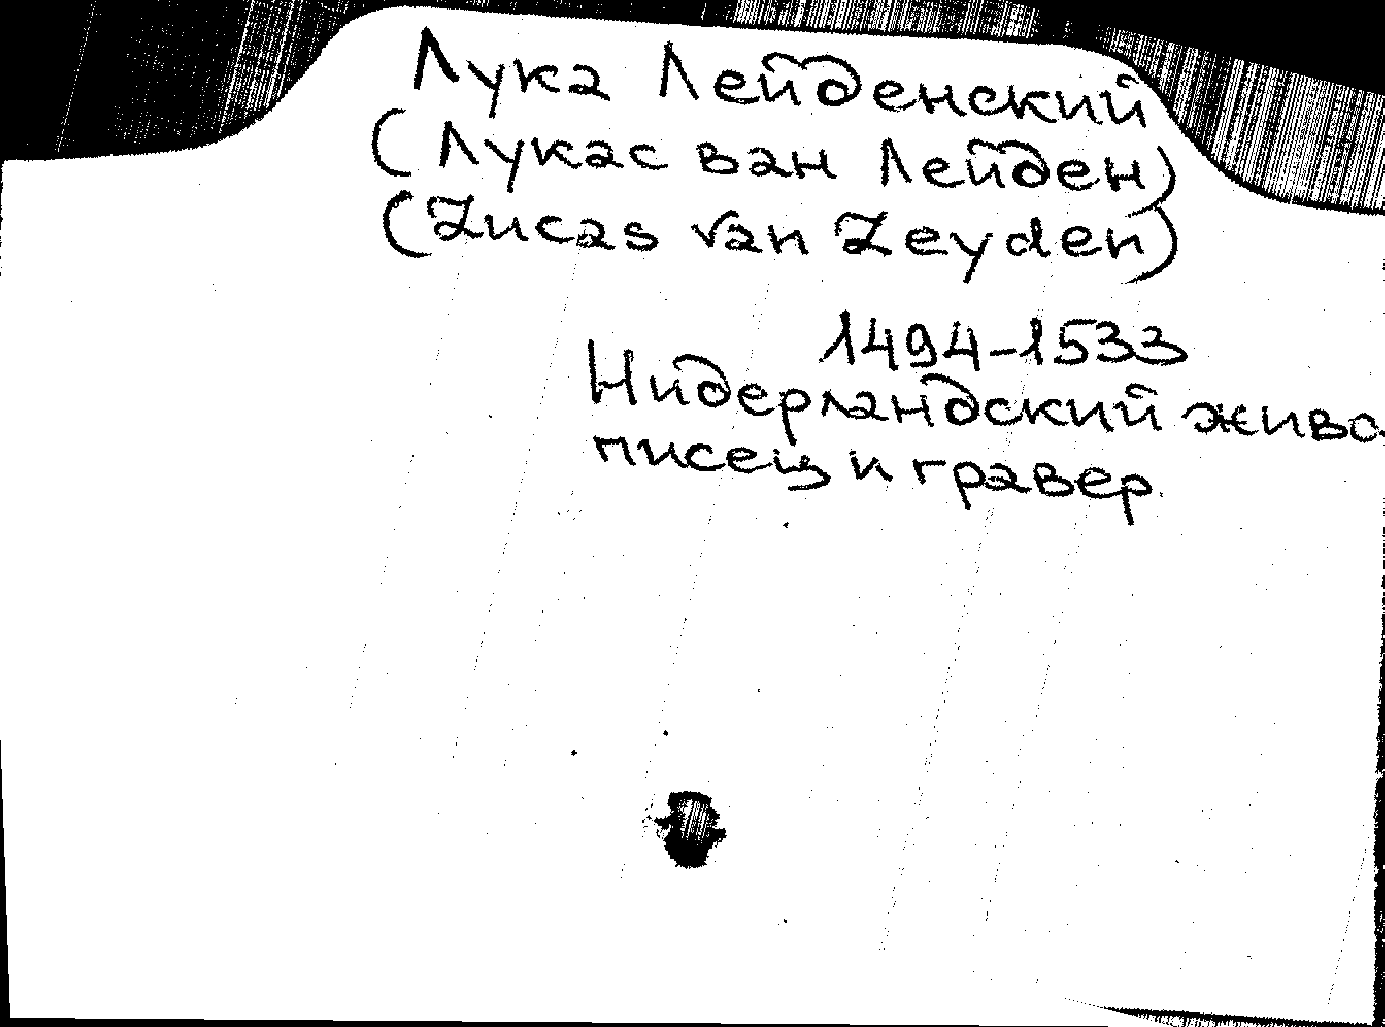 Лука Лейденский
(Лукас ван Лейден)
(Lucas van Leyden)
1494-1533
Нидерландский живо-
писец и гравер